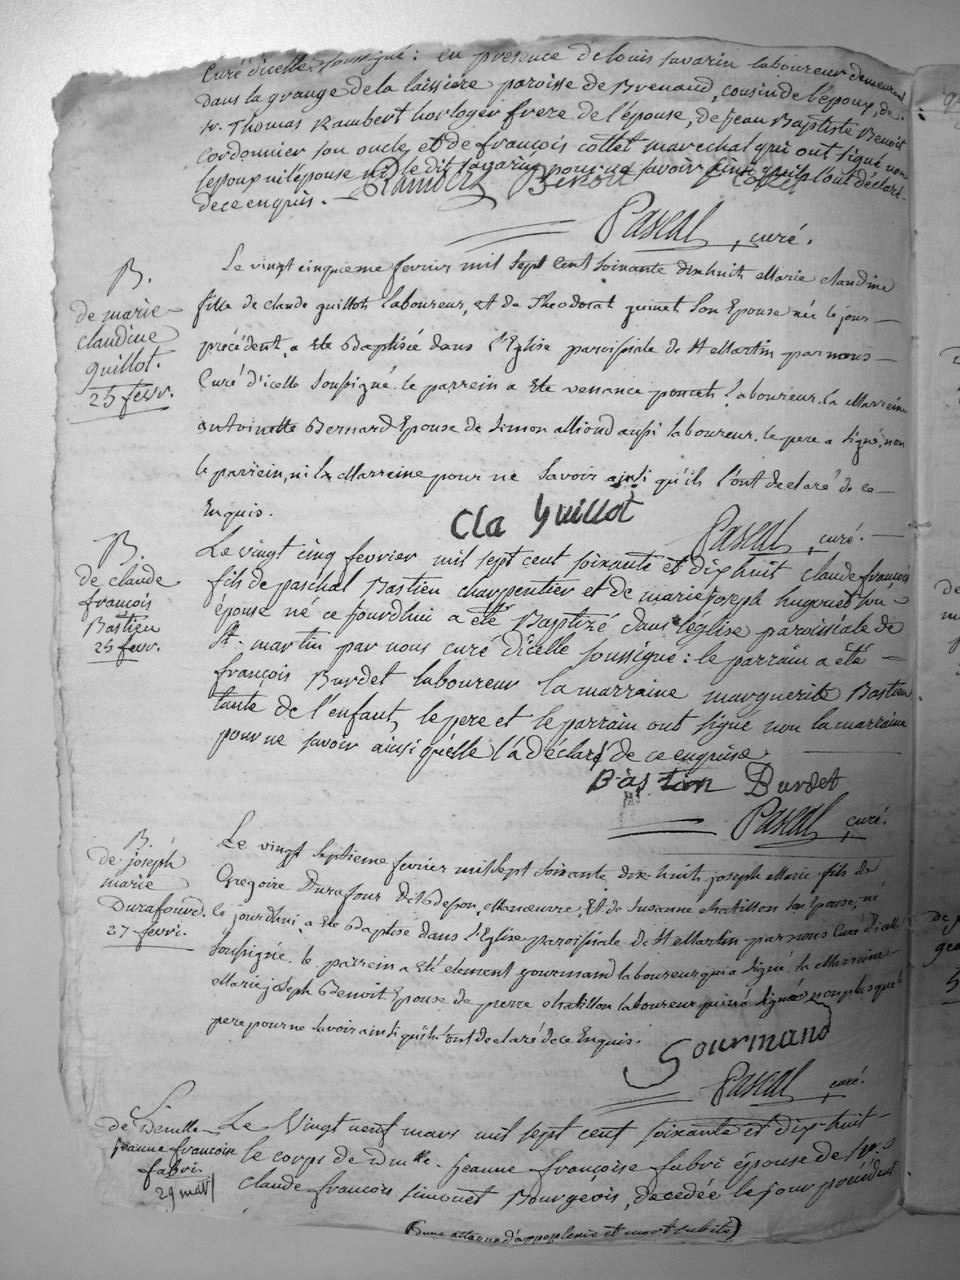 Curé d'icelle soussigné : en presence de louis savarin laboureur demeurant
dans la grange de la laissiere paroisse de Brenaud, cousin de l'époux, de
Sr. Thomas Rambert horloger frere de l'épouse, de jean Baptiste Benoit
cordonnier son oncle, et de françois collet marechal qui ont signé non
l'epoux ni l'épouse ni le dit savarin pour ne savoir ainsi qu'ils l'ont déclaré
de ce enquis. Rambert Benoit Collet
Pascal curé.
B.
de marie
claudine
guillot.
25 fevr.
Le vingt cinquieme fevrier mil sept cent soixante dixhuit Marie claudine
fille de claude guillot laboureur, et de Theodorat guinet son Epouse née le jour
précédent, a Eté Baptisée dans l'Eglise paroissiale de St Martin par nous
Curé d'icelle soussigné. le parrein a Eté venance poncet laboureur. la Marreine
antoinette Bernard Epouse de simon alliond aussi laboureur. le pere a signé, non
le parrein, ni la Marreine pour ne savoir ainsi qu'ils l'ont declaré de ce
Enquis.
Cla Guillot
Pascal curé.
B.
de claude
françois
Bastien
25 fevr.
Le vingt cinq fevrier mil sept cent soixante et dix huit claude françois
fils de paschal Bastien charpentier et de marie joseph hugoued son
épouse né ce jourdhui a été Baptizé dans l'église paroissiale de
St. martin par nous curé d'icelle soussigné : le parrain a été
françois Burdet laboureur la marraine marguerite Bastien
tante de l'enfant, le pere et le parrain ont signé non la marraine
pour ne savoir ainsi qu'elle l'a déclaré de ce enquise
Bastian Burdet
Pascal curé.
B.
de joseph
marie
Durafourd.
27 fevri.
Le vingt septieme fevrier mil sept soixante dix-huit joseph Marie fils de
Gregoire Durafour Manœuvre, Et de Susanne chatillon son Epouse, né
le jourdhui, a Eté Baptisé dans l'Eglise paroissiale de St Martin par nous Curé d'icelle
soussigné. le parrein a Eté clement gourmand laboureur qui a signé. la Marreine
Marie joseph Benoit Epouse de pierre chatillon laboureur qui n'a signé non plus que le
pere pour ne savoir ainsi qu'ils l'ont declaré de ce Enquis.
Gourmand
Pascal curé.
de Demlle
jeanne françoise
fabri.
29 mars
Le Vingt neuf mars mil sept cent soixante et dix-huit
le corps de Dmlle. jeanne françoise fabri épouse de Sr.
claude françois simonet Bourgeois, decedée le jour précédent
(d'une attaque d'appoplexie et mort subite)